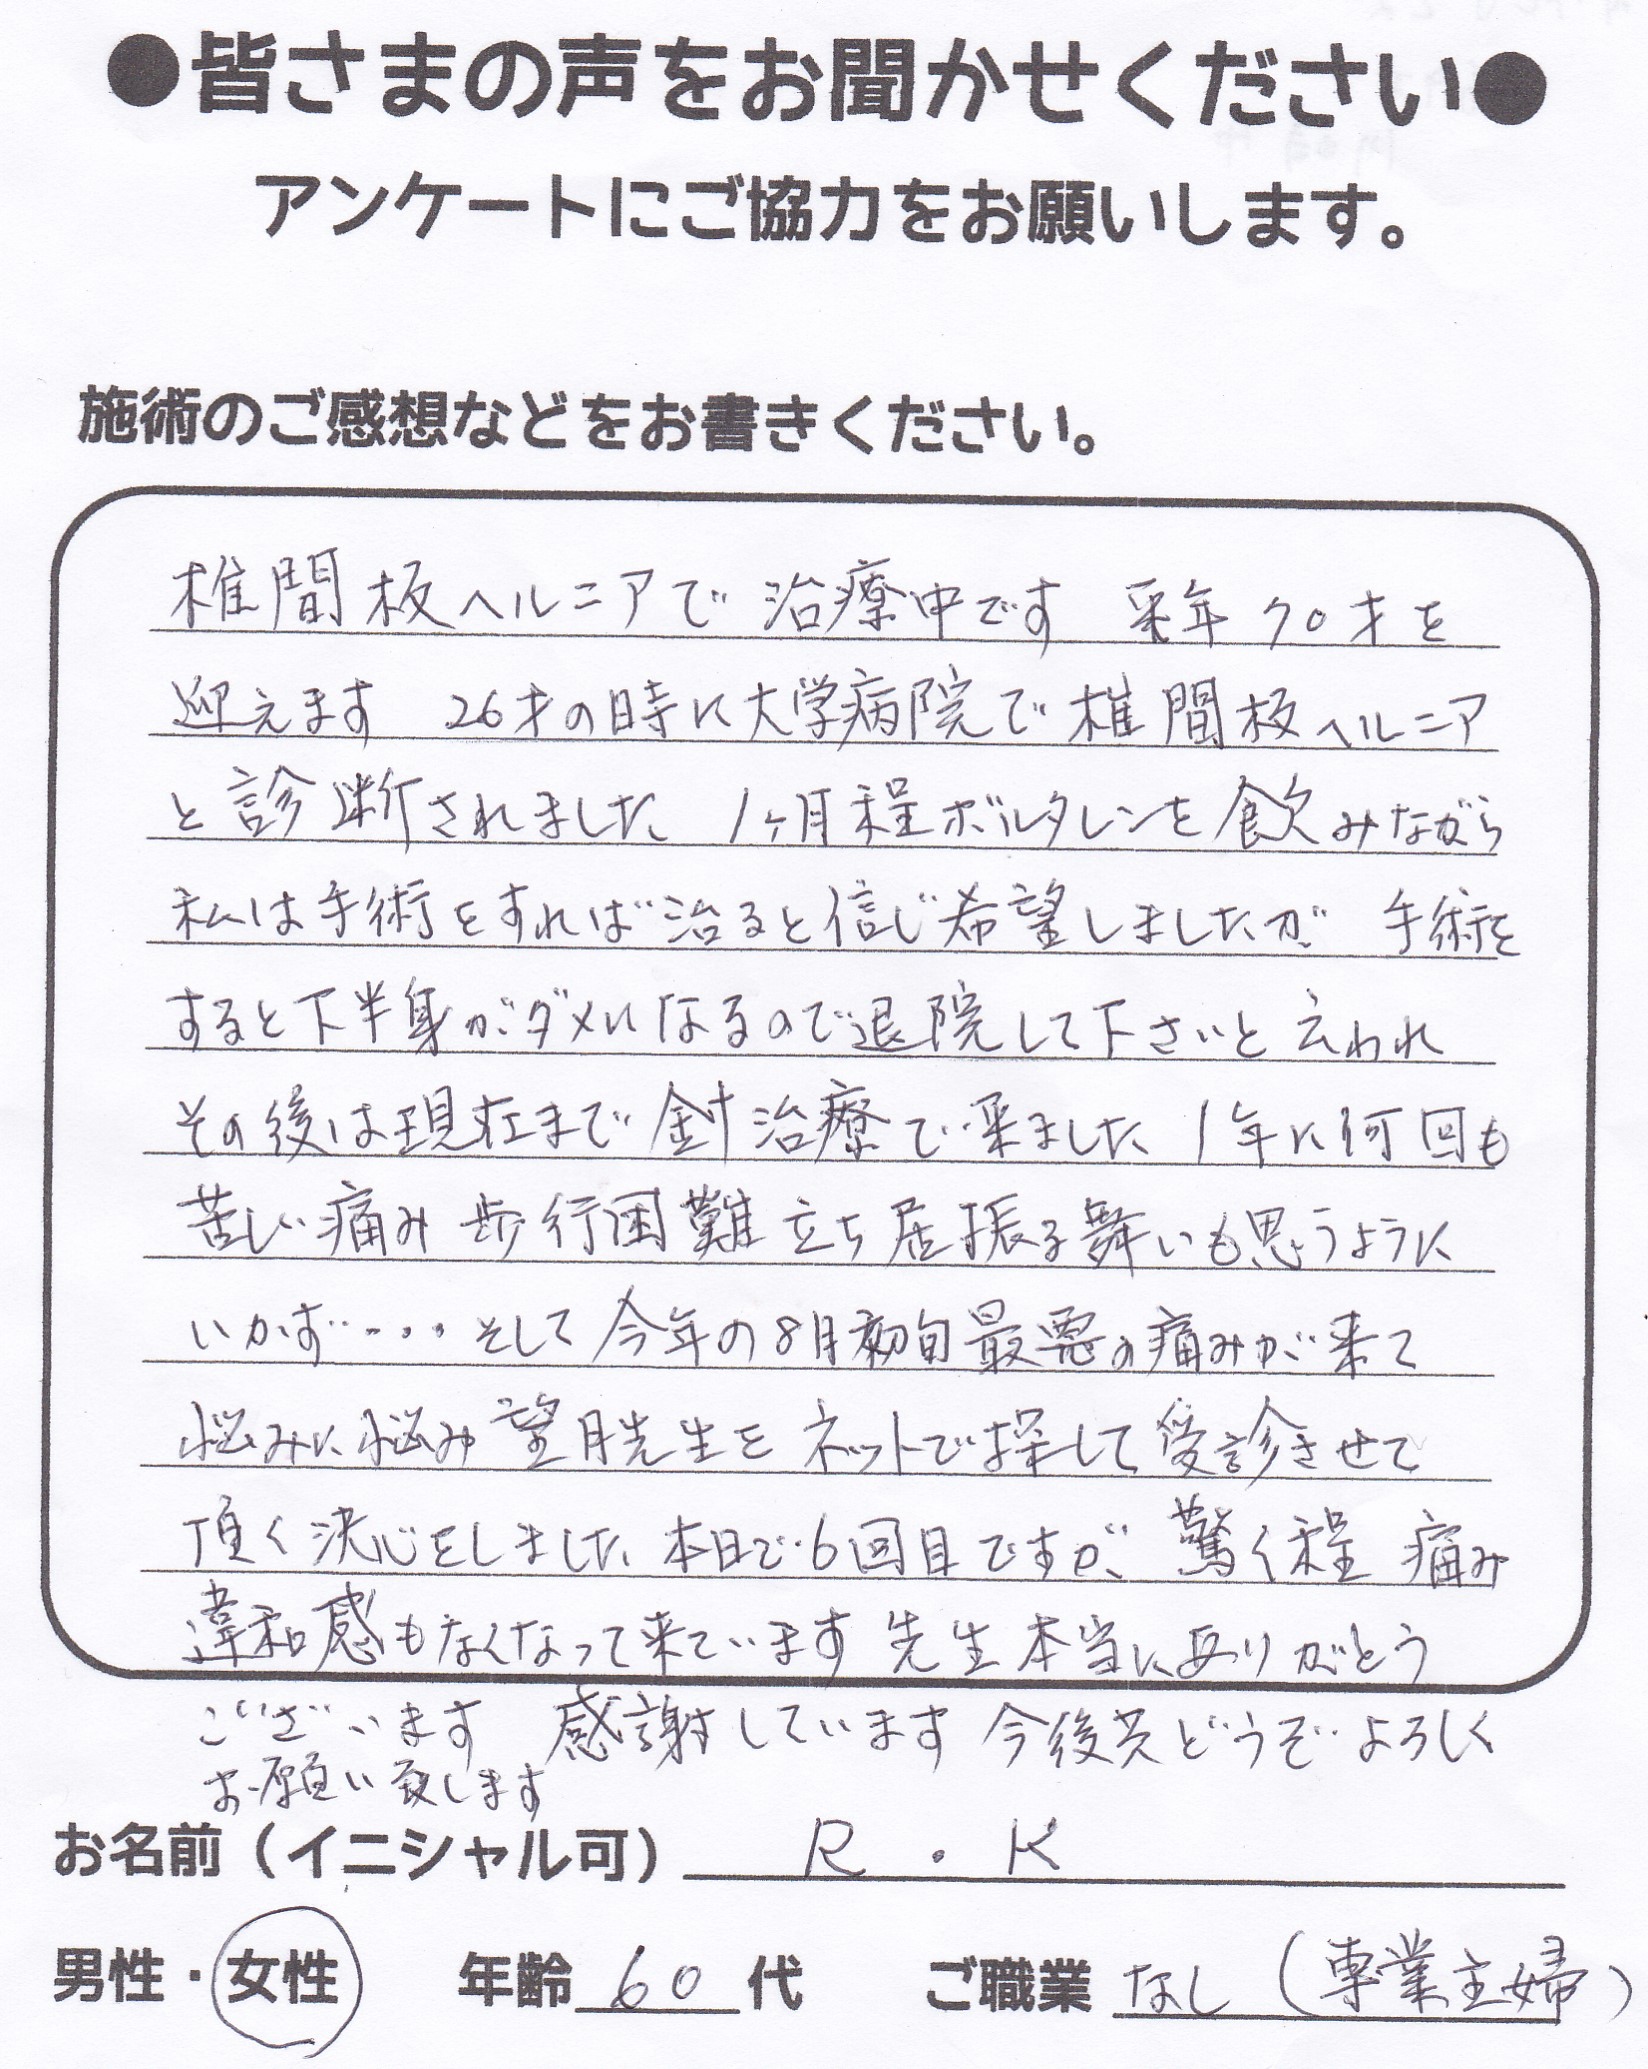 ●皆さまの声をお聞かせください●
アンケートにご協力をお願いします。
施術のご感想などをお書きください。
椎間板ヘルニアで治療中です 来年70才を
迎えます 26才の時に大学病院で椎間板ヘルニア
と診断されました 1ヶ月程ボルタレンを飲みながら
私は手術をすれば治ると信じ希望しましたが 手術を
すると下半身がダメになるので退院して下さいと云われ
その後は現在まで針治療で来ました 1年に何回も
苦しい痛み 歩行困難 立ち居振る舞いも思うように
いかず‥‥ そして今年の8月初旬最悪の痛みが来て
悩みに悩み 望月先生をネットで探して受診させて
頂く決心をしました 本日で6回目ですが、驚く程 痛み
違和感もなくなって来ています 先生本当にありがとう
ございます 感謝しています 今後共どうぞよろしく
お願い致します
お名前（イニシャル可） R・K
男性・女性 年齢 60 代 ご職業 なし（専業主婦）